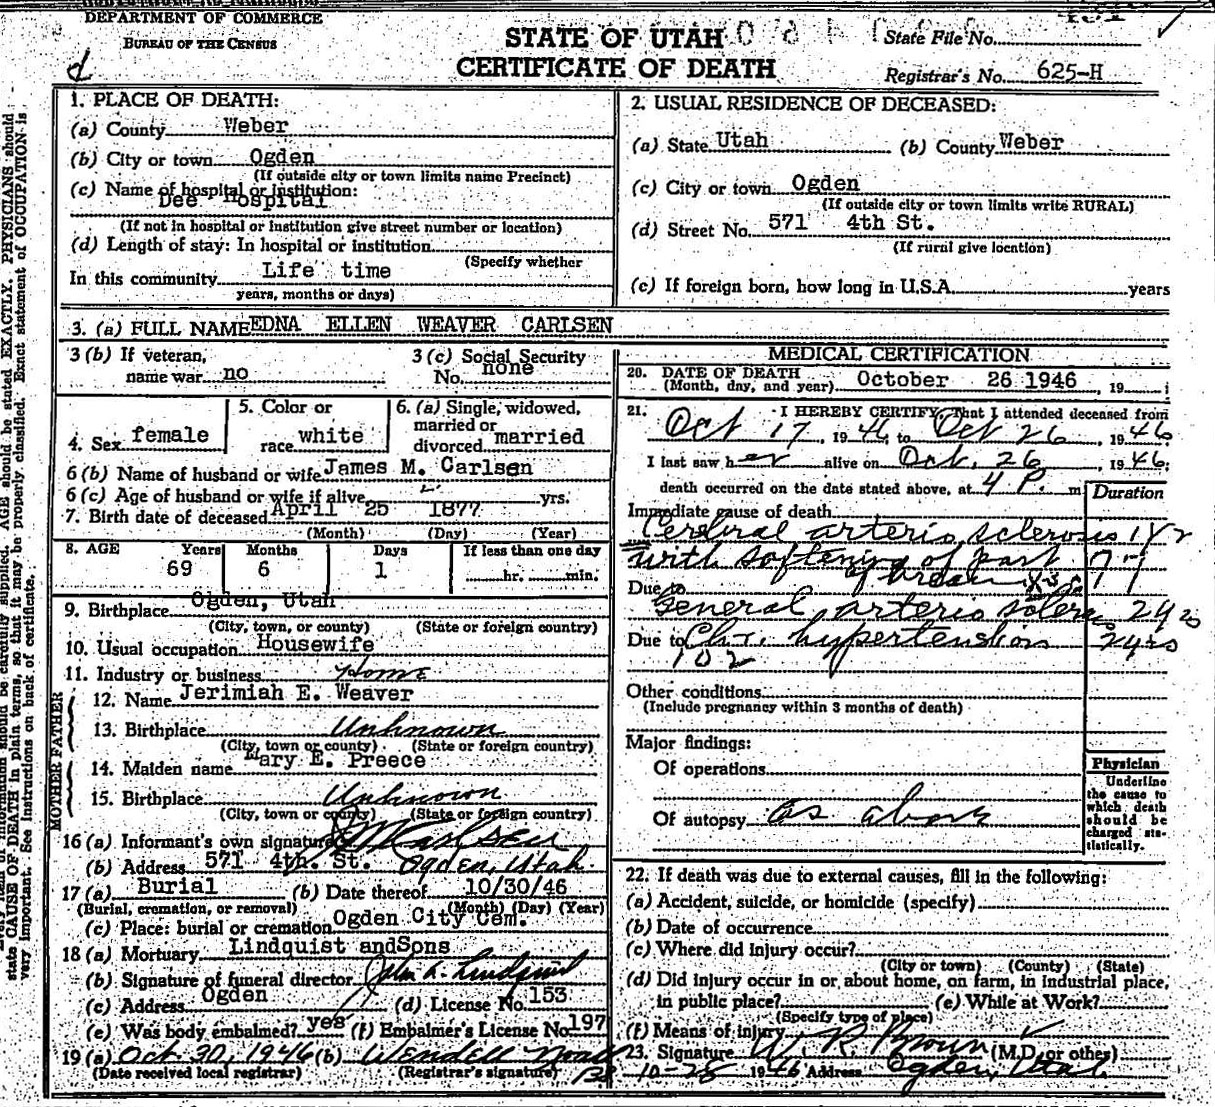 DEPARTMENT OF COMMERCE
BUREAU OF THE CENSUS
STATE OF UTAH
CERTIFICATE OF DEATH
State File No.
Registrar's No. 625-H
1. PLACE OF DEATH:
(a) County Weber
(b) City or town Ogden
(If outside city or town limits name Precinct)
(c) Name of hospital or institution:
Dee Hospital
(If not in hospital or institution give street number or location)
(d) Length of stay: In hospital or institution
(Specify whether
In this community Life time
years, months or days)
2. USUAL RESIDENCE OF DECEASED:
(a) State Utah (b) County Weber
(c) City or town Ogden
(If outside city or town limits write RURAL)
(d) Street No. 571 4th St.
(If rural give location)
(e) If foreign born, how long in U.S.A. years
3. (a) FULL NAME EDNA ELLEN WEAVER CARLSEN
3 (b) If veteran, name war no
3 (c) Social Security No. none
4. Sex female
5. Color or race white
6. (a) Single, widowed, married or divorced married
6 (b) Name of husband or wife James M. Carlsen
6 (c) Age of husband or wife if alive yrs.
7. Birth date of deceased April 25 1877
(Month) (Day) (Year)
8. AGE Years Months Days If less than one day
69 6 1 hr. min.
9. Birthplace Ogden, Utah
(City, town, or county) (State or foreign country)
10. Usual occupation Housewife
11. Industry or business Home
FATHER
12. Name Jerimiah E. Weaver
13. Birthplace Unknown
(City, town or county) (State or foreign country)
MOTHER
14. Maiden name Mary E. Preece
15. Birthplace Unknown
(City, town or county) (State or foreign country)
16 (a) Informant's own signature J M Carlsen
(b) Address 571 4th. St. Ogden, Utah
17 (a) Burial (b) Date thereof 10/30/46
(Burial, cremation, or removal) (Month) (Day) (Year)
(c) Place: burial or cremation Ogden City Cem.
18 (a) Mortuary Lindquist andSons
(b) Signature of funeral director John A. Lindquist
(c) Address Ogden (d) License No. 153
(e) Was body embalmed? yes (f) Embalmer's License No. 197
19 (a) Oct 30, 1946 (b) Wendell
(Date received local registrar) (Registrar's signature)
MEDICAL CERTIFICATION
20. DATE OF DEATH
(Month, day, and year) October 26 1946, 19
21. I HEREBY CERTIFY, That I attended deceased from
Oct 17, 1946, to Oct 26, 1946
I last saw her alive on Oct. 26, 1946;
death occurred on the date stated above, at 4 P. m
Duration
Immediate cause of death
Cerebral arterio sclerosis
with softening of part
of brain
Due to
General arterio sclerosis
Due to Chr. hypertension 2 yrs
102
Other conditions
(Include pregnancy within 3 months of death)
Major findings:
Of operations
Of autopsy as above
Physician
Underline
the cause to
which death
should be
charged sta-
tistically.
22. If death was due to external causes, fill in the following:
(a) Accident, suicide, or homicide (specify)
(b) Date of occurrence
(c) Where did injury occur?
(City or town) (County) (State)
(d) Did injury occur in or about home, on farm, in industrial place,
in public place? (e) While at Work?
(Specify type of place)
(f) Means of injury
23. Signature W. R. Brown (M.D. or other)
10-28 1946 Address Ogden, Utah
AGE should be stated EXACTLY. PHYSICIANS should
state CAUSE OF DEATH in plain terms, so that it may be properly classified. Exact statement of OCCUPATION is
very important. See instructions on back of certificate.